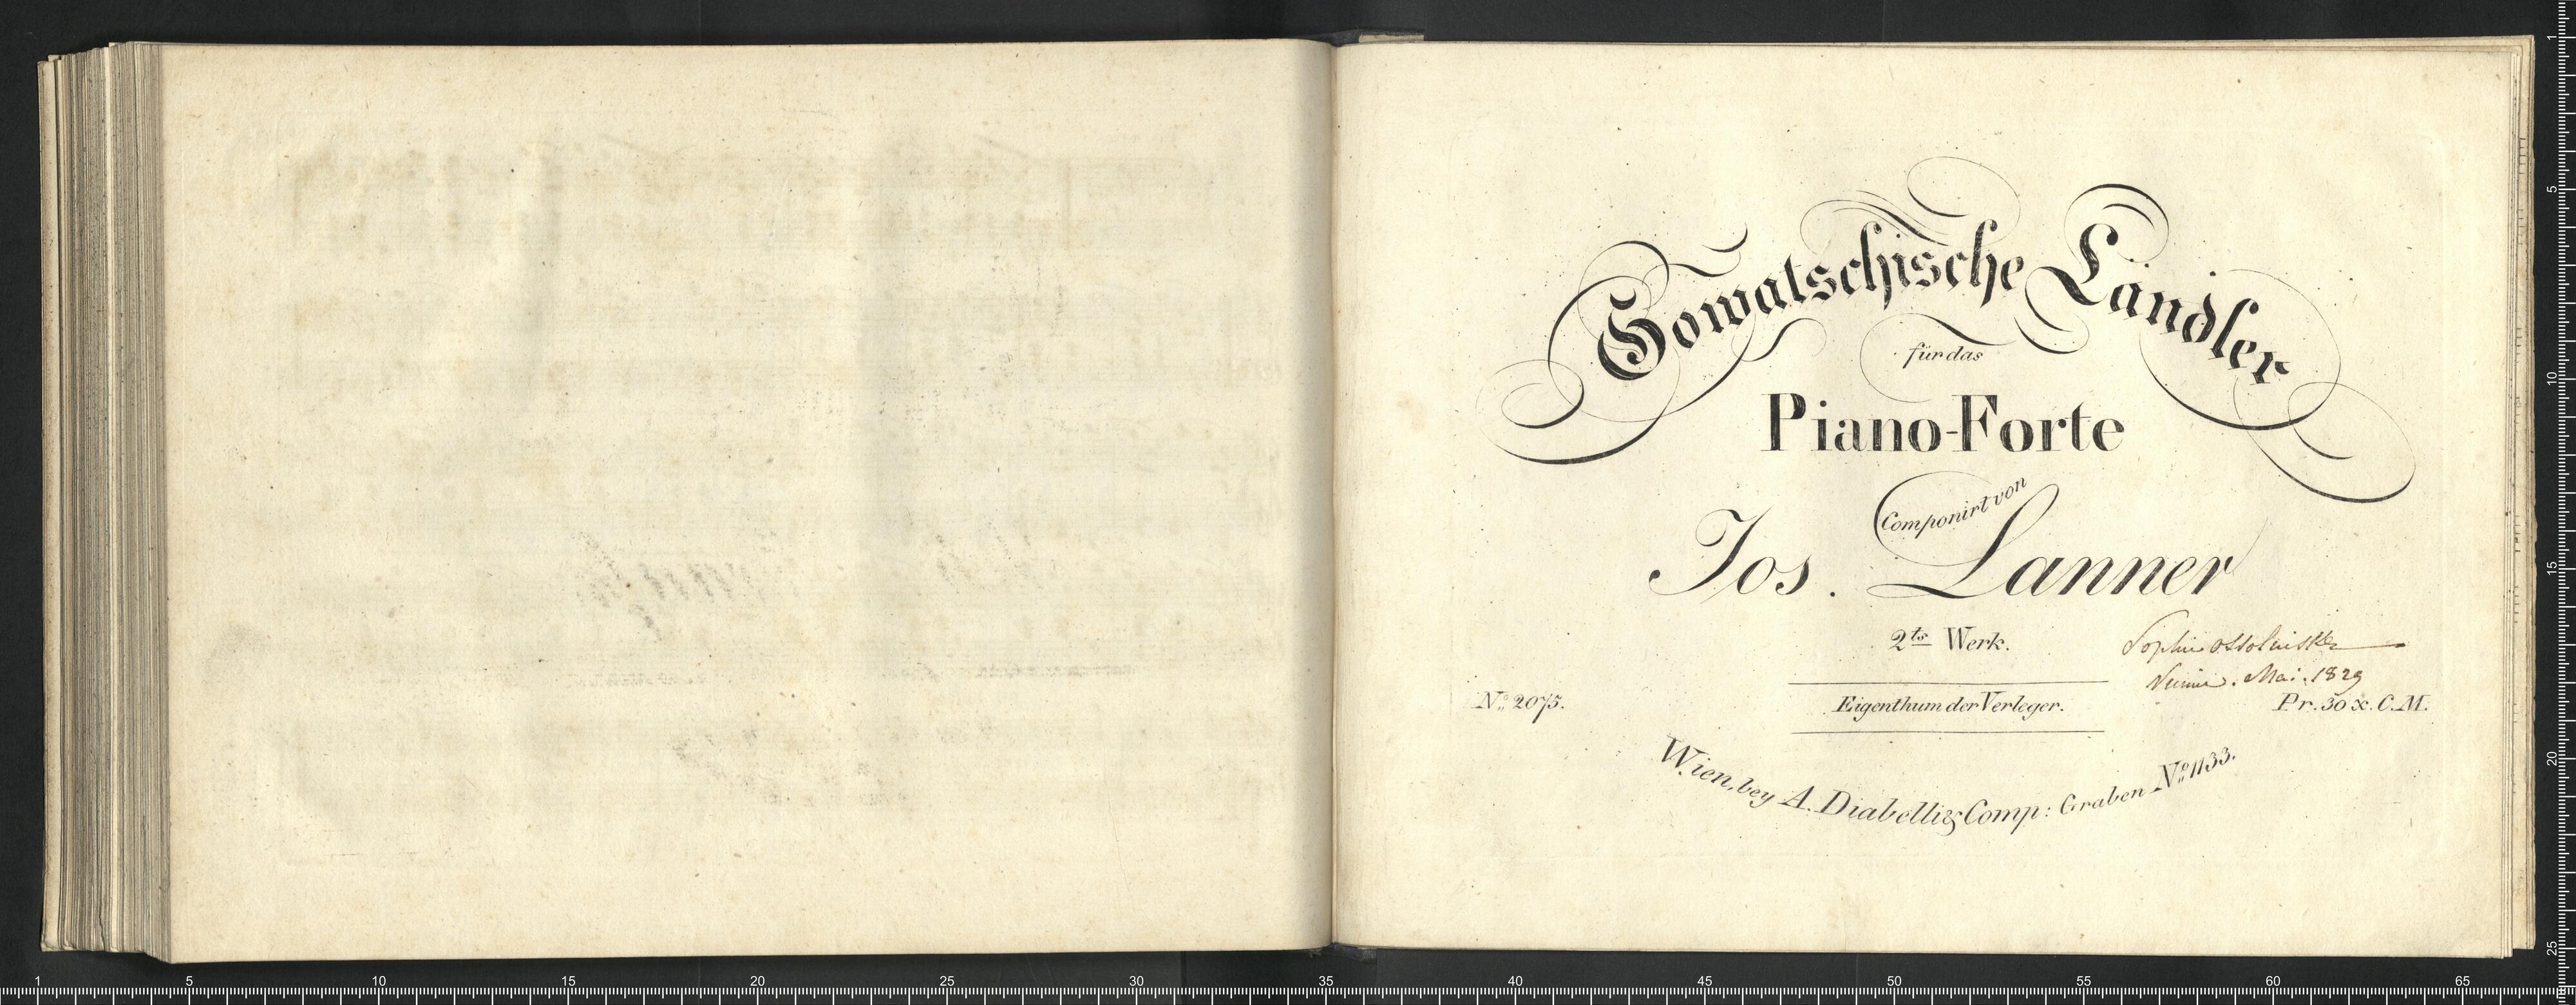 Gowatschische Ländler
für das
Piano-Forte
Componirt von
Jos. Lanner
2ts Werk.
Sophie
Vienne. Mai. 1829
No. 2075.
Eigenthum der Verleger.
Pr. 30 x. C.M.
Wien, bey A. Diabelli & Comp: Graben No. 1133.
1 5 10 15 20 25 30 35 40 45 50 55 60 65
1
5
10
15
20
25